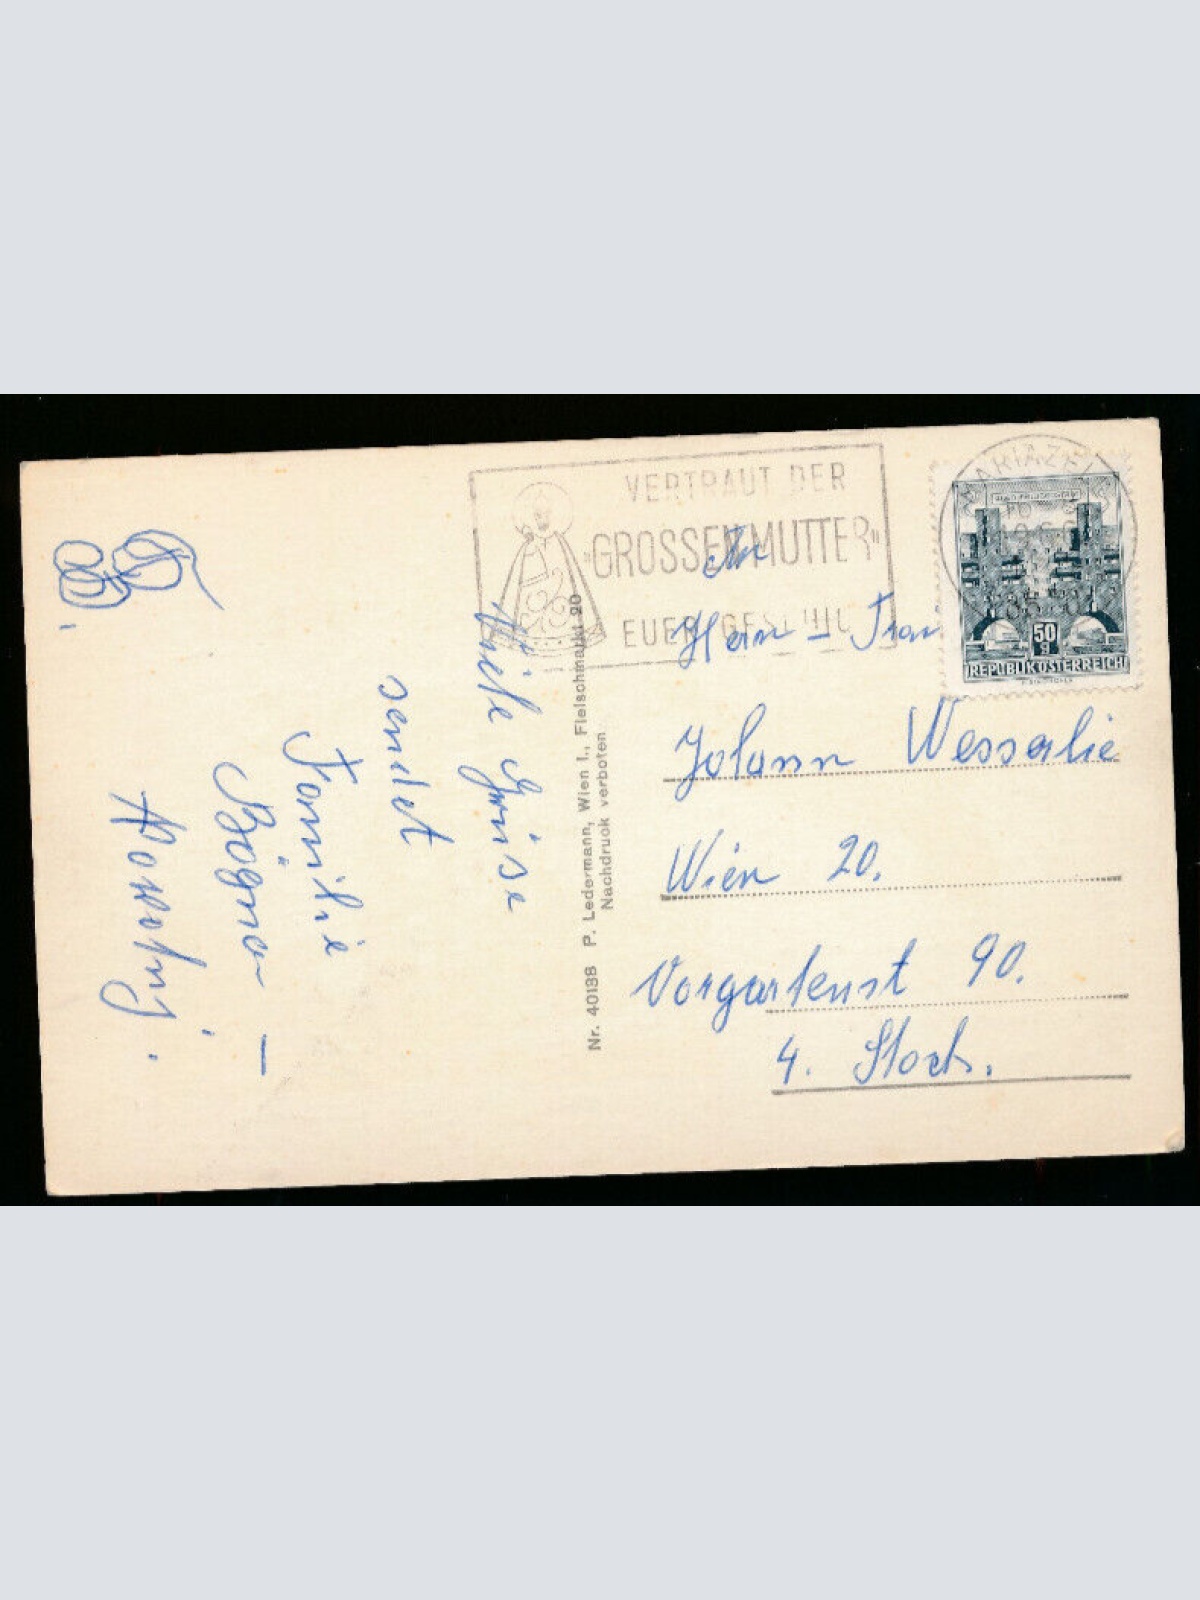 VERTRAUT DER
"GROSSEN MUTTER"
EUER
MARIAZELL
50
g
REPUBLIK ÖSTERREICH
An
Herrn – Frau
Johann
Wien 20.
Vorgartenst 90.
4. Stock.
Nr. 40188 P. Ledermann, Wien I., Fleischmarkt 20
Nachdruck verboten
Viele Grüsse
sendet
Familie